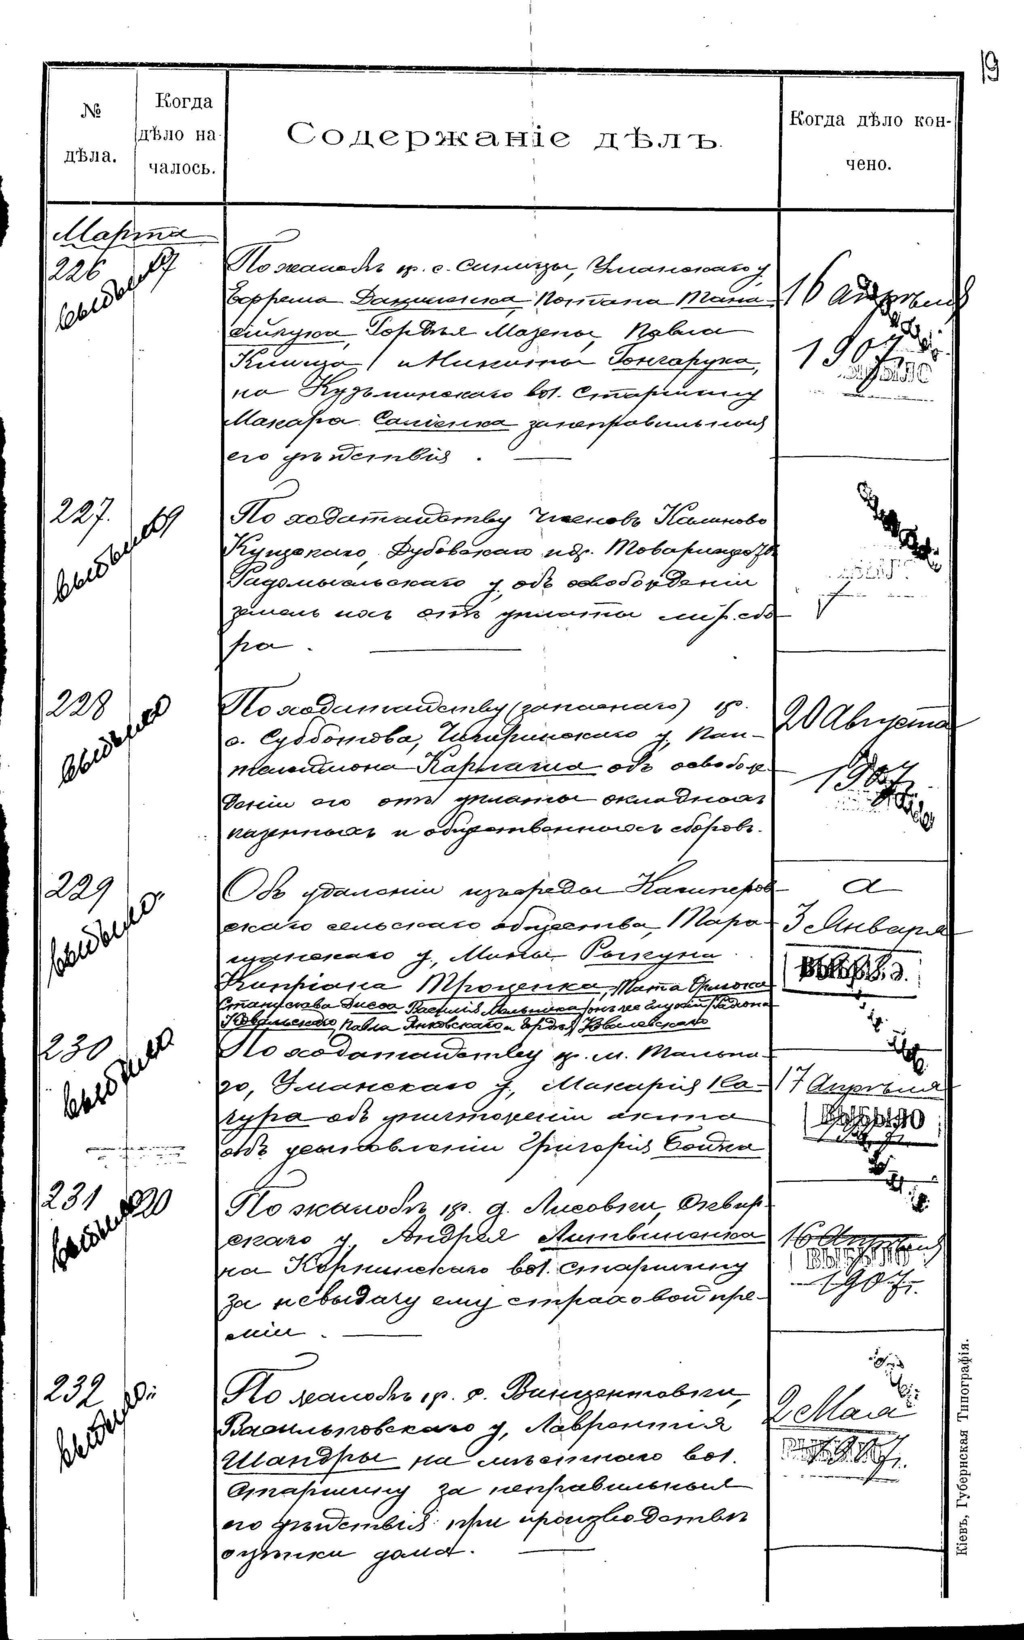 19
№ дѣла.
Когда дѣло началось.
Содержаніе дѣлъ.
Когда дѣло кончено.
Марта
226 выбыло 17
По жалобѣ кр. с. Синицы, Уманскаго у.
Ефрема Даниленка, Потапа Мана-
сійчука, Гордѣя Мазепы, Павла
и Никиты Гончарука,
на Кузьминскаго вол. Старшину
Макара за неправильныя
его дѣйствія.
16 апрѣля
1907 г.
227. выбыло 19
По ходатайству Членовъ Калиново
Дубовскаго Товарищества
Радомысльскаго у. объ освобожденіи
земель ихъ отъ уплаты мір. сбо-
ра.
228 выбыло
По ходатайству (запаснаго) кр.
с. Субботова, Чигиринскаго у. Пан-
телеймона объ освобож-
деніи его отъ уплаты окладныхъ
казенныхъ и общественныхъ сборовъ.
20 Августа
1907 г.
229 выбыло
Объ удаленіи изъ среды
скаго сельскаго общества, Тара-
щанскаго у.
Кипріана Троценка
Станислава Василія Мельника
Павла Янковскаго и
3 Января
230 выбыло
По ходатайству кр. м. Тально-
го, Уманскаго у. Макарія Ка-
чура объ уничтоженіи акта
объ усыновленіи Григорія Бойка
17 Апрѣля
ВЫБЫЛО
231 выбыло 20
По жалобѣ кр. д. Лисовки, Сквир-
скаго у. Андрея Литвиненка
на Корнинскаго вол. старшину
за невыдачу ему страховой пре-
міи.
16 Апрѣля
ВЫБЫЛО
1907 г.
232 выбыло
По жалобѣ кр. с. Винцентовки,
Васильковскаго у. Лаврентія
Шандры на мѣстнаго вол.
Старшину за неправильныя
его дѣйствія при производствѣ
оцѣнки дома.
2 Мая
1907 г.
Кіевъ, Губернская Типографія.